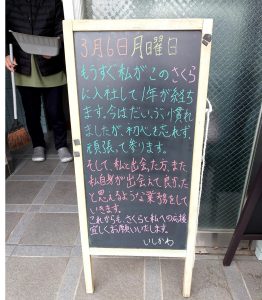 3月6日月曜日
もうすぐ私がこのさくら
に入社して1年が経ち
ます。今はだいぶ慣れ
ましたが、初心を忘れず、
頑張って参ります。
そして、私と出会った方、また
私自身が出会えて良かった
と思えるような業務をして
いきます。
これからも、さくらと私への応援
宜しくお願いいたします。
いしかわ